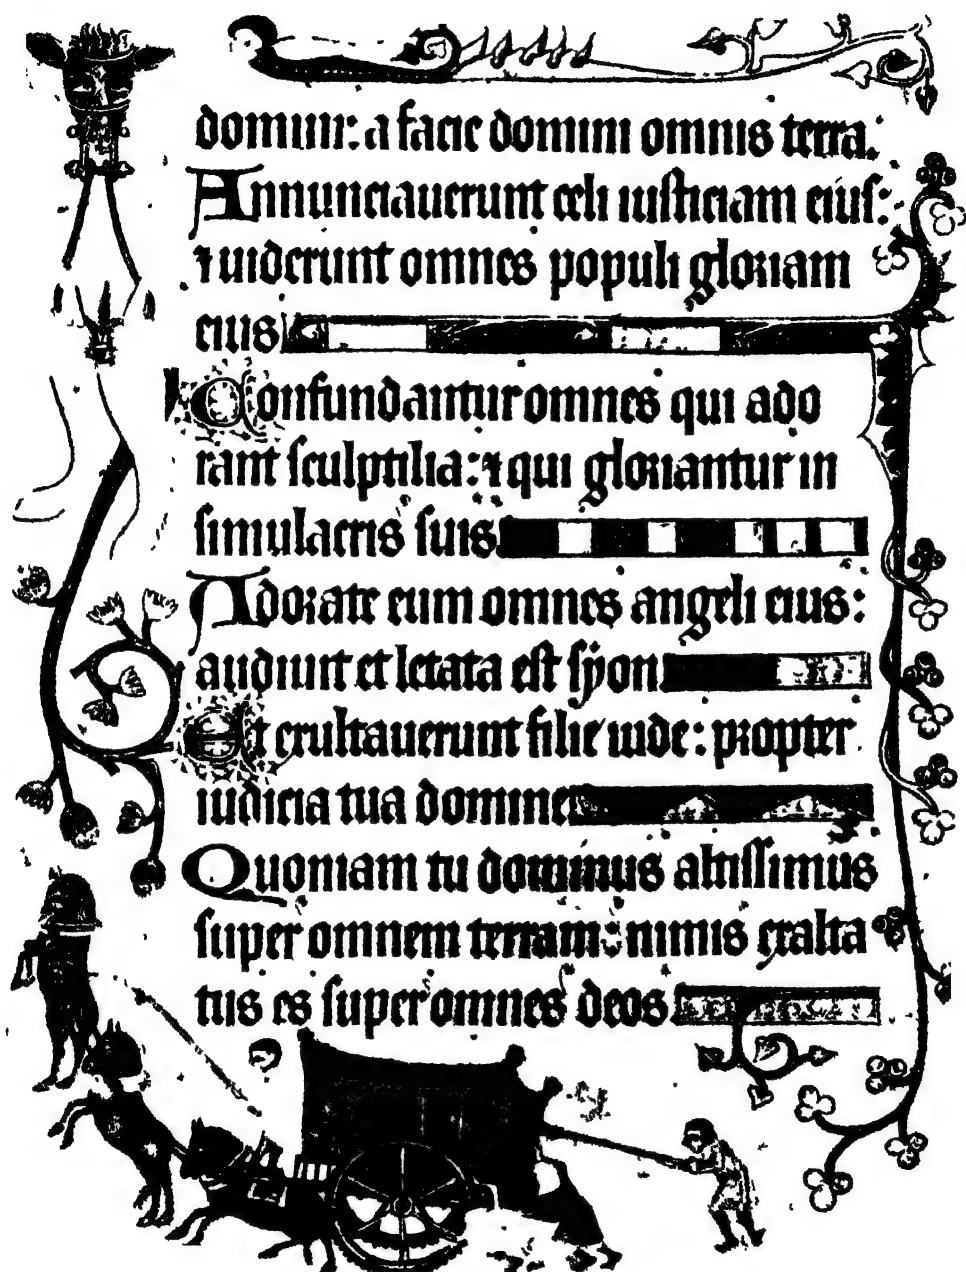 domini: a facie domini omnis terra.
Annunciauerunt celi iusticiam eius:
⁊ uiderunt omnes populi gloriam
eius
Confundantur omnes qui ado
rant sculptilia: ⁊ qui gloriantur in
simulacris suis.
Adorate eum omnes angeli eius:
audiuit et letata est syon.
Et exultauerunt filie iude: propter
iudicia tua domine
Quoniam tu dominus altissimus
super omnem terram: nimis exalta
tus es super omnes deos.